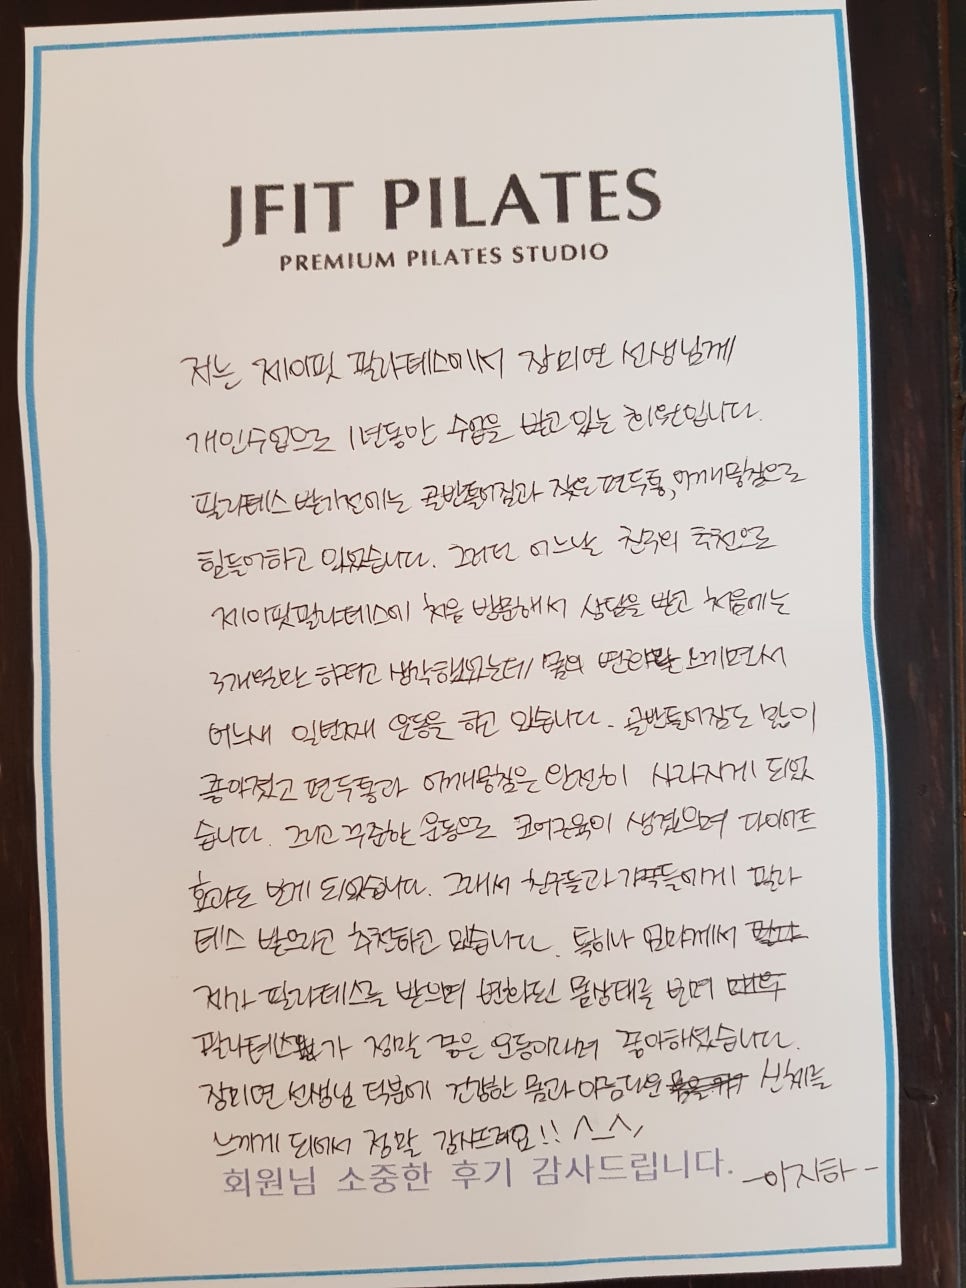 JFIT PILATES
PREMIUM PILATES STUDIO
저는 제이핏 필라테스에서 장미연 선생님께
개인수업으로 1년동안 수업을 받고 있는 회원입니다.
필라테스 받기전에는 골반틀어짐과 잦은 편두통, 어깨뭉침으로
힘들어하고 있었습니다. 그러던 어느날 친구의 추천으로
제이핏필라테스에 처음 방문해서 상담을 받고 처음에는
3개월만 하려고 생각했었는데, 몸의 변화를 느끼면서
어느새 일년째 운동을 하고 있습니다. 골반틀어짐도 많이
좋아졌고 편두통과 어깨뭉침은 완전히 사라지게 되었
습니다. 그리고 꾸준한 운동으로 코어근육이 생겼으며 다이어트
효과도 보게 되었습니다. 그래서 친구들과 가족들에게 필라
테스 받으라고 추천하고 있습니다. 특히나 엄마께서
제가 필라테스를 받으며 변화된 몸상태를 보며
필라테스가 정말 좋은 운동이라며 좋아해졌습니다.
장미연 선생님 덕분에 건강한 몸과 아름다운 신체를
느끼게 되어서 정말 감사드려요!! ^_^
회원님 소중한 후기 감사드립니다.
-이지하-